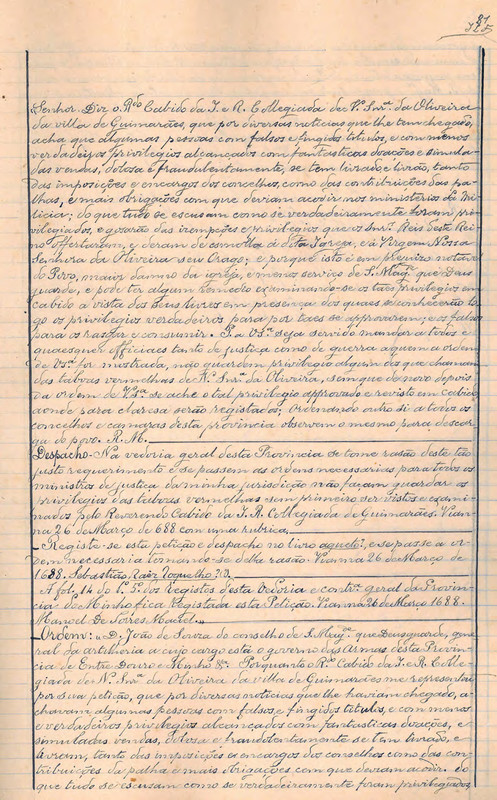 87
Senhor. Diz o R.do Cabido da I. e R. Collegiada de N.ª Snr.ª da Oliveira
da villa de Guimarães, que por diversas noticias que lhe tem chegado,
acha que algumas pessoas com falsos e fingidos titulos, e com menos
verdadeiros privilegios alcançados com fantasticas doações e simula-
das vendas, dolosa e fraudulentamente, se tem livrado e livrão, tanto
das imposições e encargos dos concelhos, como das contribuições das pa-
lhas, e mais obrigações com que deviam acodir nos ministerios da Mi-
licia; do que tudo se escusam como se verdadeiramente foram pri-
vilegiados, e gozarão das izempções e privilegios que os Snr.es Reis deste Rei-
no offertaram, e deram de esmolla á dita Igreja, e á Virgem Nossa
Senhora da Oliveira seu Orago; e porque isto é em prejuizo notavel
do Povo, maior damno da igreja, e menos serviço de S. Mag.e que Deus
guarde, e pode ter algum remedio examinando-se os taes privilegios em
cabido a vista dos seus livros em presença dos quaes se conhecerão lo-
go os privilegios verdadeiros para por taes se approvarem; e os falsos
para os rasgar e consumir. P. a V. S.ª seja servido mandar a todos e
quaesquer officiaes tanto de justiça como de guerra a quem a ordem
de V. S.ª for mostrada, não guardem privilegio algum dos que chamam
das taboas vermelhas de N. Snr.ª da Oliveira, sem que de novo depois
da ordem de V. S.ª se ache o tal privilegio approvado e revisto em cabido,
aonde para clareza serão registados; Ordenando outro si a todos os
concelhos e camaras desta provincia observem o mesmo para descar-
ga do povo. R. M.
Despacho. Na vedoria geral desta Provincia se tome rasão deste tão
justo requerimento e se passem as ordens necessarias para todos os
ministros de justiça da minha jurisdição não façam guardar os
privilegios das taboas vermelhas sem primeiro ser vistos e exami-
nados pelo Reverendo Cabido da I. R. Collegiada de Guimarães. Vian-
na 26 de Março de 688 com uma rubrica.
Registe-se esta petição e despacho no livro aque to?, e se passe a or-
dem necessaria tomando-se della rasão. Vianna 26 de Março de
1688. Sebastião
A fol. 14 do L. 5.º dos Registos desta Vedoria e contr.ª geral da Provin-
cia do Minho fica Registada esta Petição. Vianna 26 de Março 1688.
Manoel de Torres
Ordem: D. João de Souza do conselho de S. Mag.e que Deus guarde, gene-
ral da artilharia a cujo cargo está o governo das Armas desta Provin-
cia de Entre Douro e Minho &ª. Porquanto o R.do Cabido da I. e R. Colle-
giada de N.ª Snr.ª da Oliveira da villa de Guimarães me representou
por sua petição, que por diversas noticias que lhe haviam chegado, a-
chavam algumas pessoas com falsos e fingidos titulos, e com menos
verdadeiros privilegios alcançados com fantasticas doações, e
simuladas vendas, dolosa e fraudolentamente se tem livrado, e
livram, tanto das imposições e encargos dos conselhos como das con-
tribuições da palha e mais obrigações com que deviam acodir. do
que tudo se escusam como se verdadeiramente foram privilegiados,